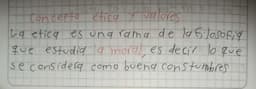 Concerto etica y valores
La etica es una rama de la filosofia
que estudia la moral, es decir lo que
se considera como buena constumbres